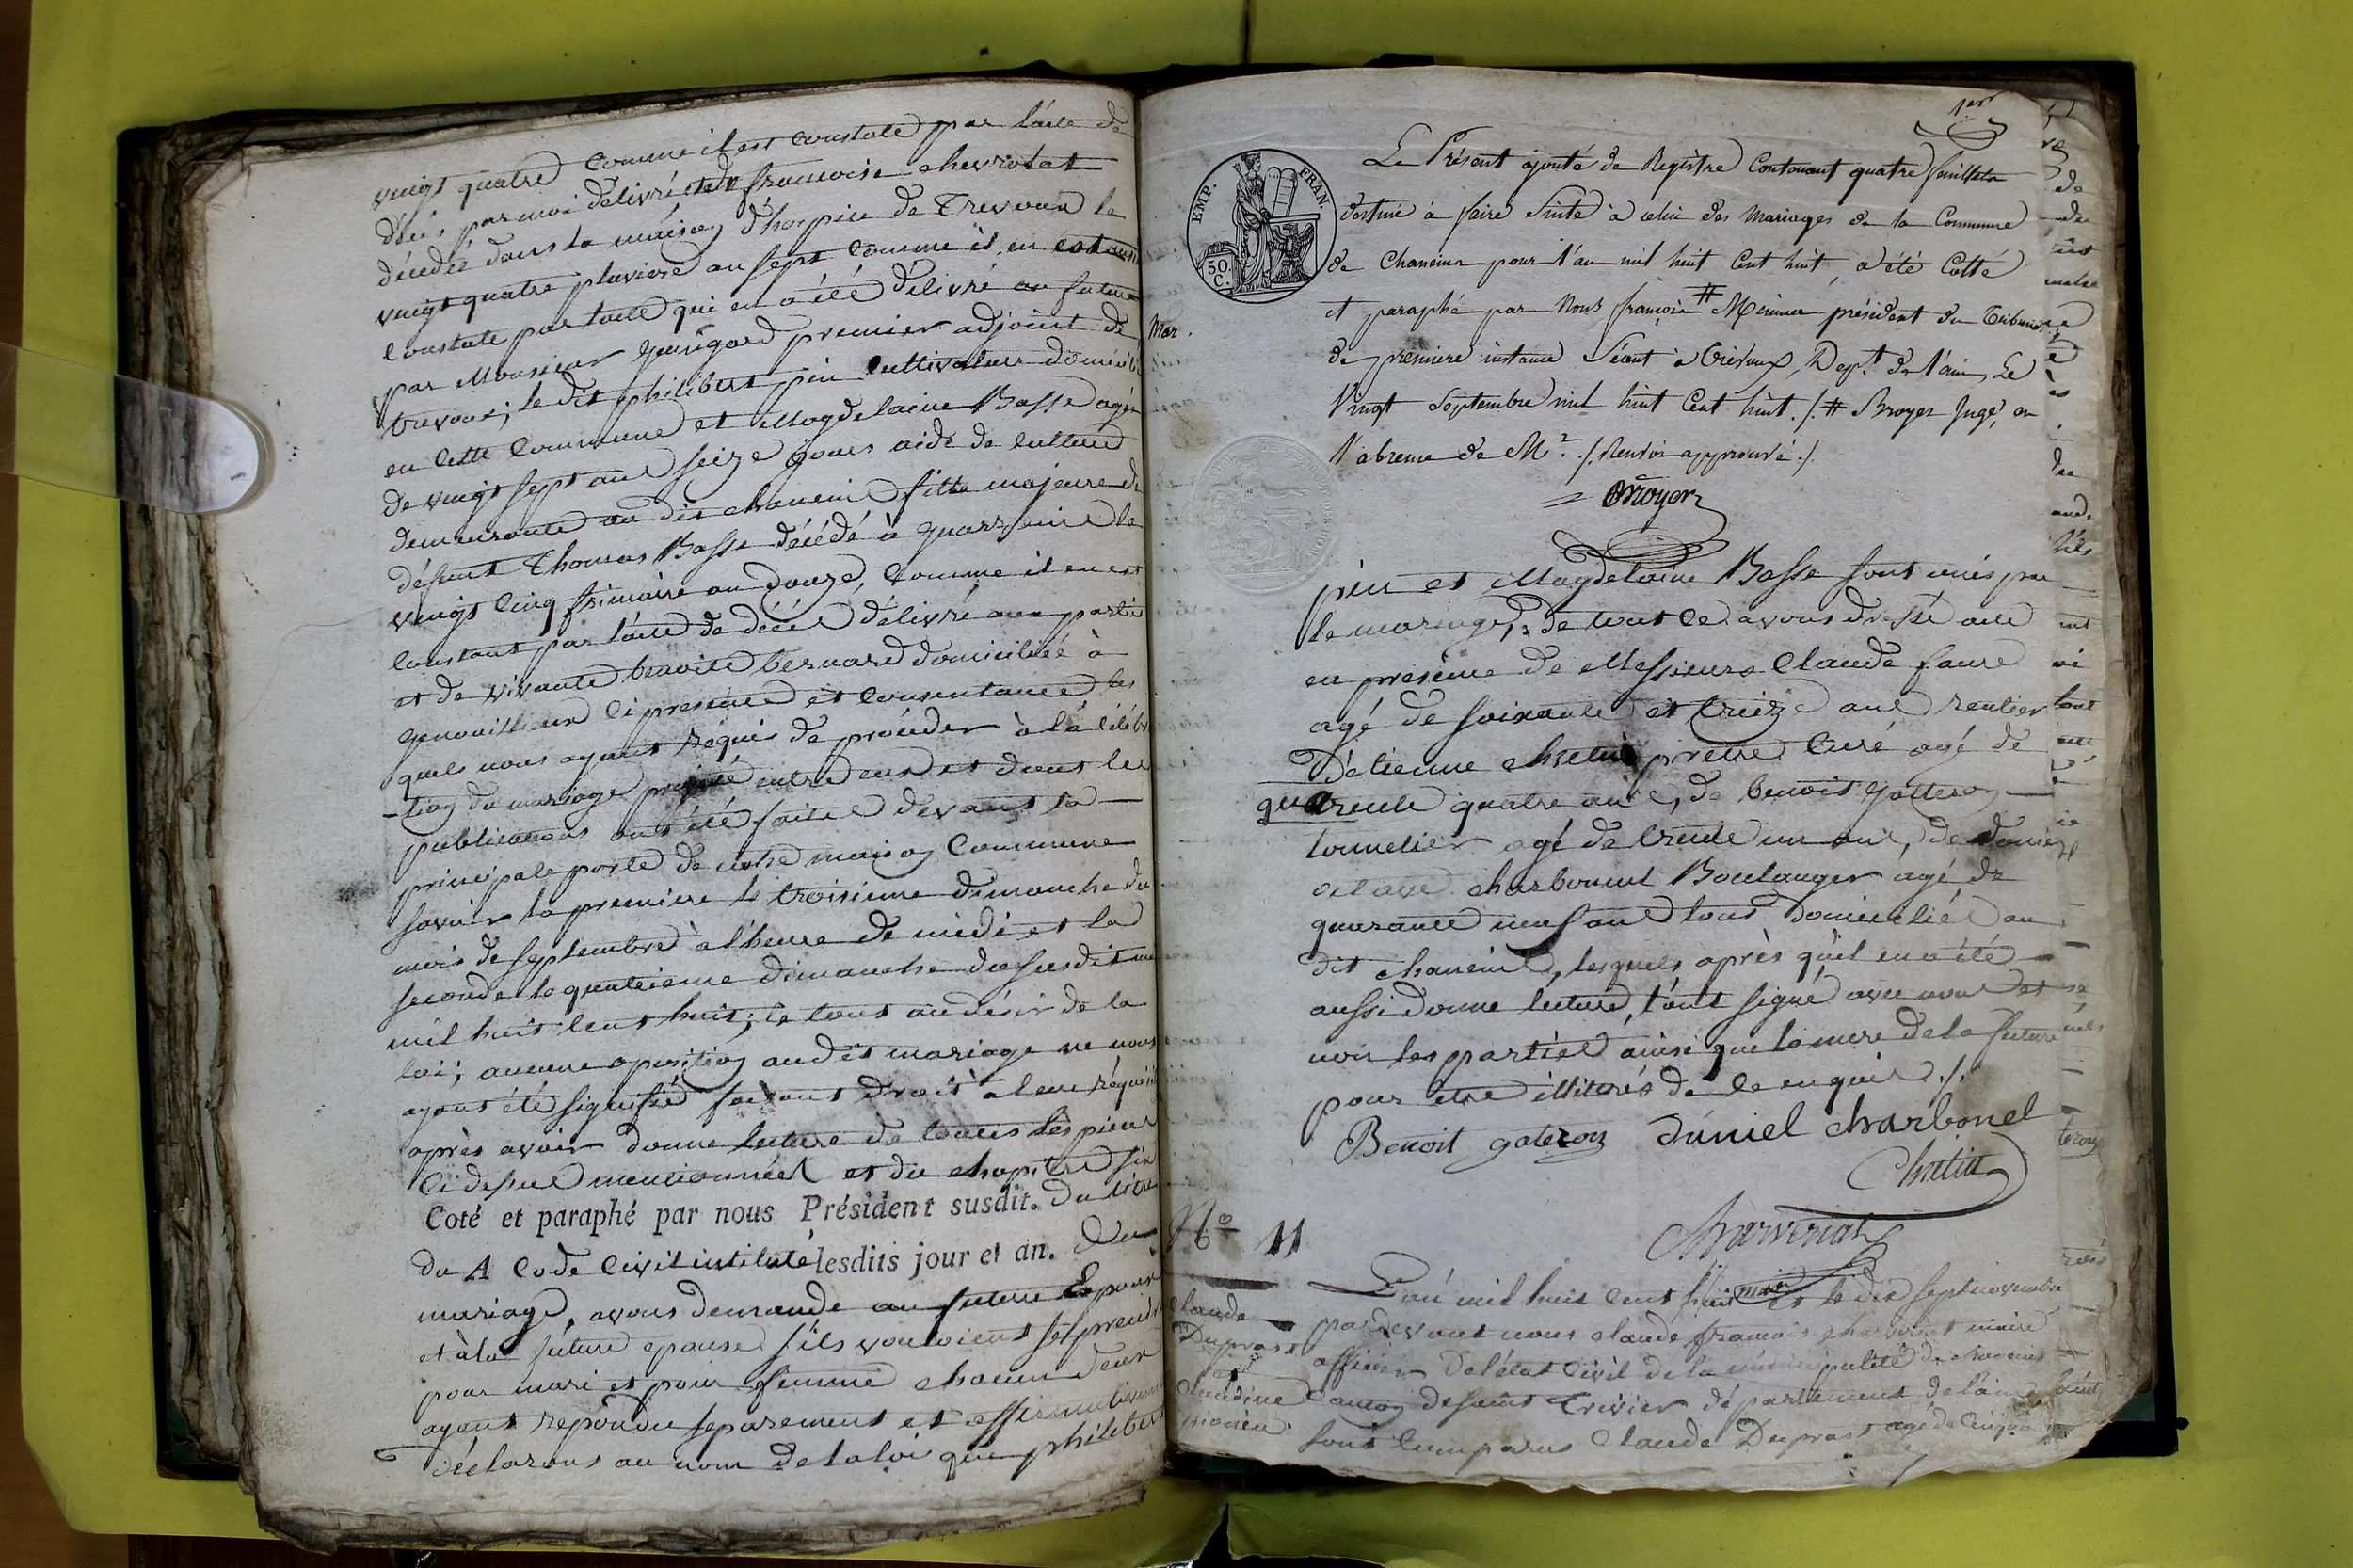 vingt quatre comme il est constaté par l'acte de
décès par moi délivré et de francoise chevrolat
décédée dans la maison d'hospice de Trevoux le
vingt quatre pluviose an sept comme il en est aussi
constaté par l'acte qui en a été délivré au futur
par Monsieur premier adjoint de
trevoux; le dit philibert pin cultivateur domicilié
en cette Commune et Magdelaine Basse agée
de vingt sept ans seize jours aide de culture
demeurante au dit chaneins fille majeure de
défunt Thomas Basse décédé à le
vingt cinq frimaire an douze, comme il en est
constant par l'acte de décès délivré aux parties
et de vivante benoite bernard domiciliée à
genouilleux ci presente et consentante les
quels nous ayant requis de procéder à la célébra
-tion du mariage projeté entre eux et dont les
publications ont été faites devant la
principale porte de notre maison Commune
savoir la premiere le troisieme dimanche du
mois de septembre à l'heure de midi et la
seconde le quatrieme dimanche du susdit mois
mil huit cent huit; le tout au désir de la
loi; aucune oposition audit mariage ne nous
ayant été signifié faisant droit à leur réquisi
après avoir donné lecture de toutes les pieces
ci dessus mentionnées et du chapitre six
Coté et paraphé par nous Président susdit. du titre
du A Code Civil intitulé lesdits jour et an. Du
mariage, avons demandé au futur Epoux
et à la future epouse s'ils vouloient se prendre
pour mari et pour femme chacun deux
ayant repondu separement et affirmativement
déclarons au nom de la loi que philibert
1er
Le Présent ajouté de Registre Contenant quatre feuillets
destiné à faire Suite à celui des Mariages de la Commune
de Chaneins pour l'an mil huit Cent huit, a été Cotté
EMP. FRAN.
50. C.
et paraphé par Nous françois # président du Tribunal
Mar.
de premiere instance Séant à Trévoux, Dept. de l'ain, Le
Vingt Septembre mil huit Cent huit ./. # Broyer Juge, en
l'absence de Mr. ./. Renvoi approuvé ./.
= Broyer
pin et Magdelaine Basse sont unis par
le mariage, de tout ce avons dressé acte
en presence de Messieurs Claude faure
agé de soixante et treize ans rentier
D'etienne chretin pretre Curé agé de
trente quatre ans, de benoit gatteron
tonnelier agé de trente un ans, de
charbonnel Boulanger agé de
quarante neuf ans tous domicilié au
dit chaneins, lesquels après qu'il en a été
aussi donné lecture, l'ont signé avec nous et
non les parties ainsi que la mere de la future
pour etre illiterés de ce enquis ./.
Benoit gateron daniel charbonel
Chretin
Charverial
maire
No 11
L'an mil huit cent huit et le dix sept novembre
Claude
par devant nous claude françois maire
Duprast
officier de l'état Civil de la municipalité de chaneins
et
Claudine
Canton de saint Trivier département de l'ain
sont comparus Claude Duprast agé de